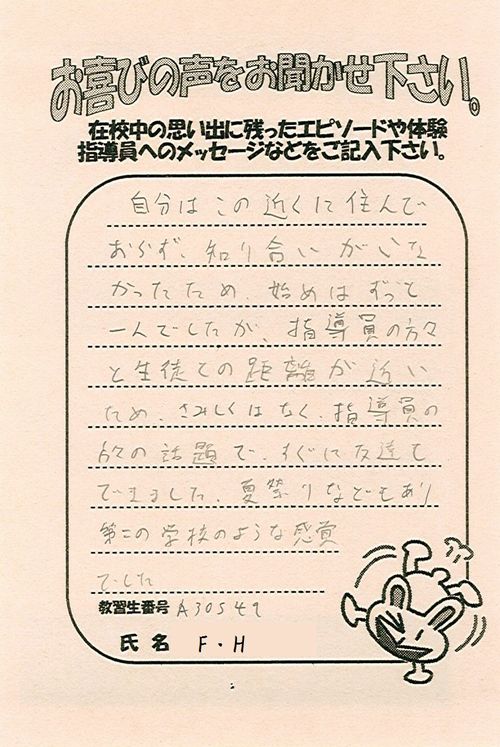 お喜びの声をお聞かせ下さい。
在校中の思い出に残ったエピソードや体験
指導員へのメッセージなどをご記入下さい。
自分はこの近くに住んで
おらず、知り合いがいな
かったため、始めはずっと
一人でしたが、指導員の方々
と生徒との距離が近い
ため、さみしくはなく、指導員の
方々の話題で、すぐに友達も
できました。夏祭りなどもあり
第二の学校のような感覚
でした
教習生番号 A30547
氏名 F・H